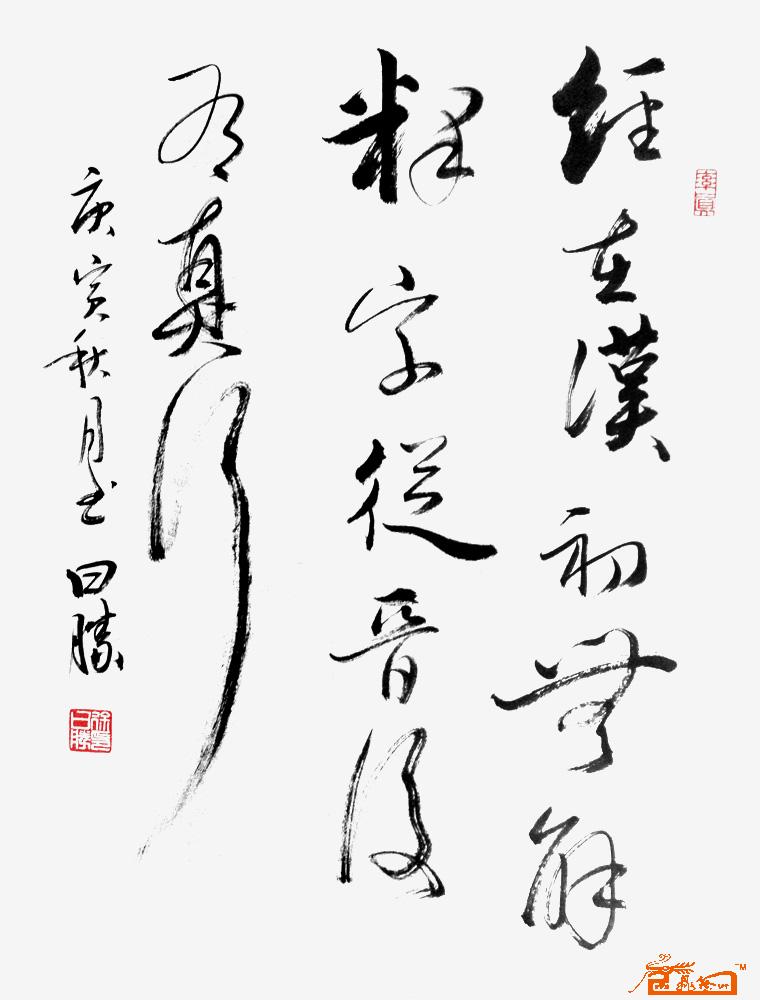 經在漢初無解
釋字從晉後
有真行
庚寅秋月書曰勝